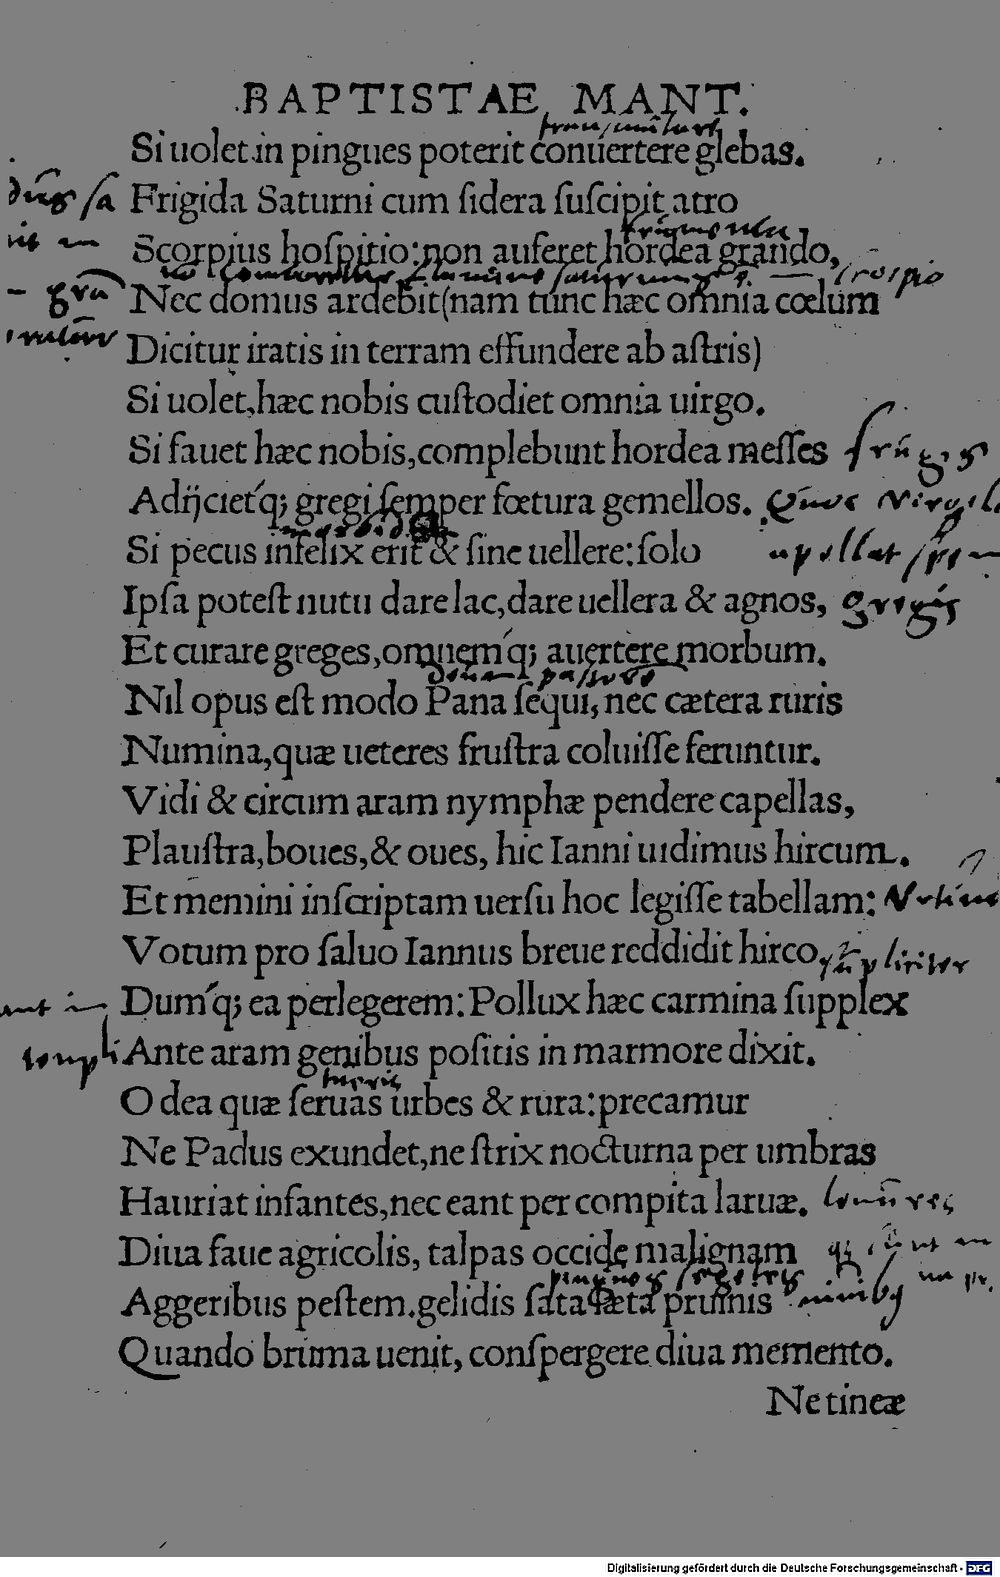 BAPTISTAE MANT.
Si uolet in pingues poterit conuertere glebas.
Frigida Saturni cum ſidera ſuſcipit atro
Scorpius hoſpitio: non auferet hordea grando,
Nec domus ardebit (nam tunc hæc omnia cœlum
Dicitur iratis in terram effundere ab aſtris)
Si uolet, hæc nobis cuſtodiet omnia uirgo.
Si fauet hæc nobis, complebunt hordea meſſes
frugis
Adijcietq́; gregi ſemper fœtura gemellos.
Si pecus infelix erit & ſine uellere: ſolo
apellat
Ipſa poteſt nutu dare lac, dare uellera & agnos,
gregis
Et curare greges, omnemq́; auertere morbum.
Nil opus eſt modo Pana ſequi, nec cætera ruris
Numina, quæ ueteres fruſtra coluiſſe feruntur.
Vidi & circum aram nymphæ pendere capellas,
Plauſtra, boues, & oues, hic Ianni uidimus hircum.
Et memini inſcriptam uerſu hoc legiſſe tabellam:
Votum pro ſaluo Iannus breue reddidit hirco,
Dumq́; ea perlegerem: Pollux hæc carmina ſupplex
Ante aram genibus poſitis in marmore dixit.
O dea quæ ſeruas urbes & rura: precamur
Ne Padus exundet, ne ſtrix nocturna per umbras
Hauriat infantes, nec eant per compita laruæ.
Diua faue agricolis, talpas occide malignam
Aggeribus peſtem. gelidis ſata fæta pruinis
Quando bruma uenit, conſpergere diua memento.
Ne tineæ
Digitalisierung gefördert durch die Deutsche Forschungsgemeinschaft - DFG